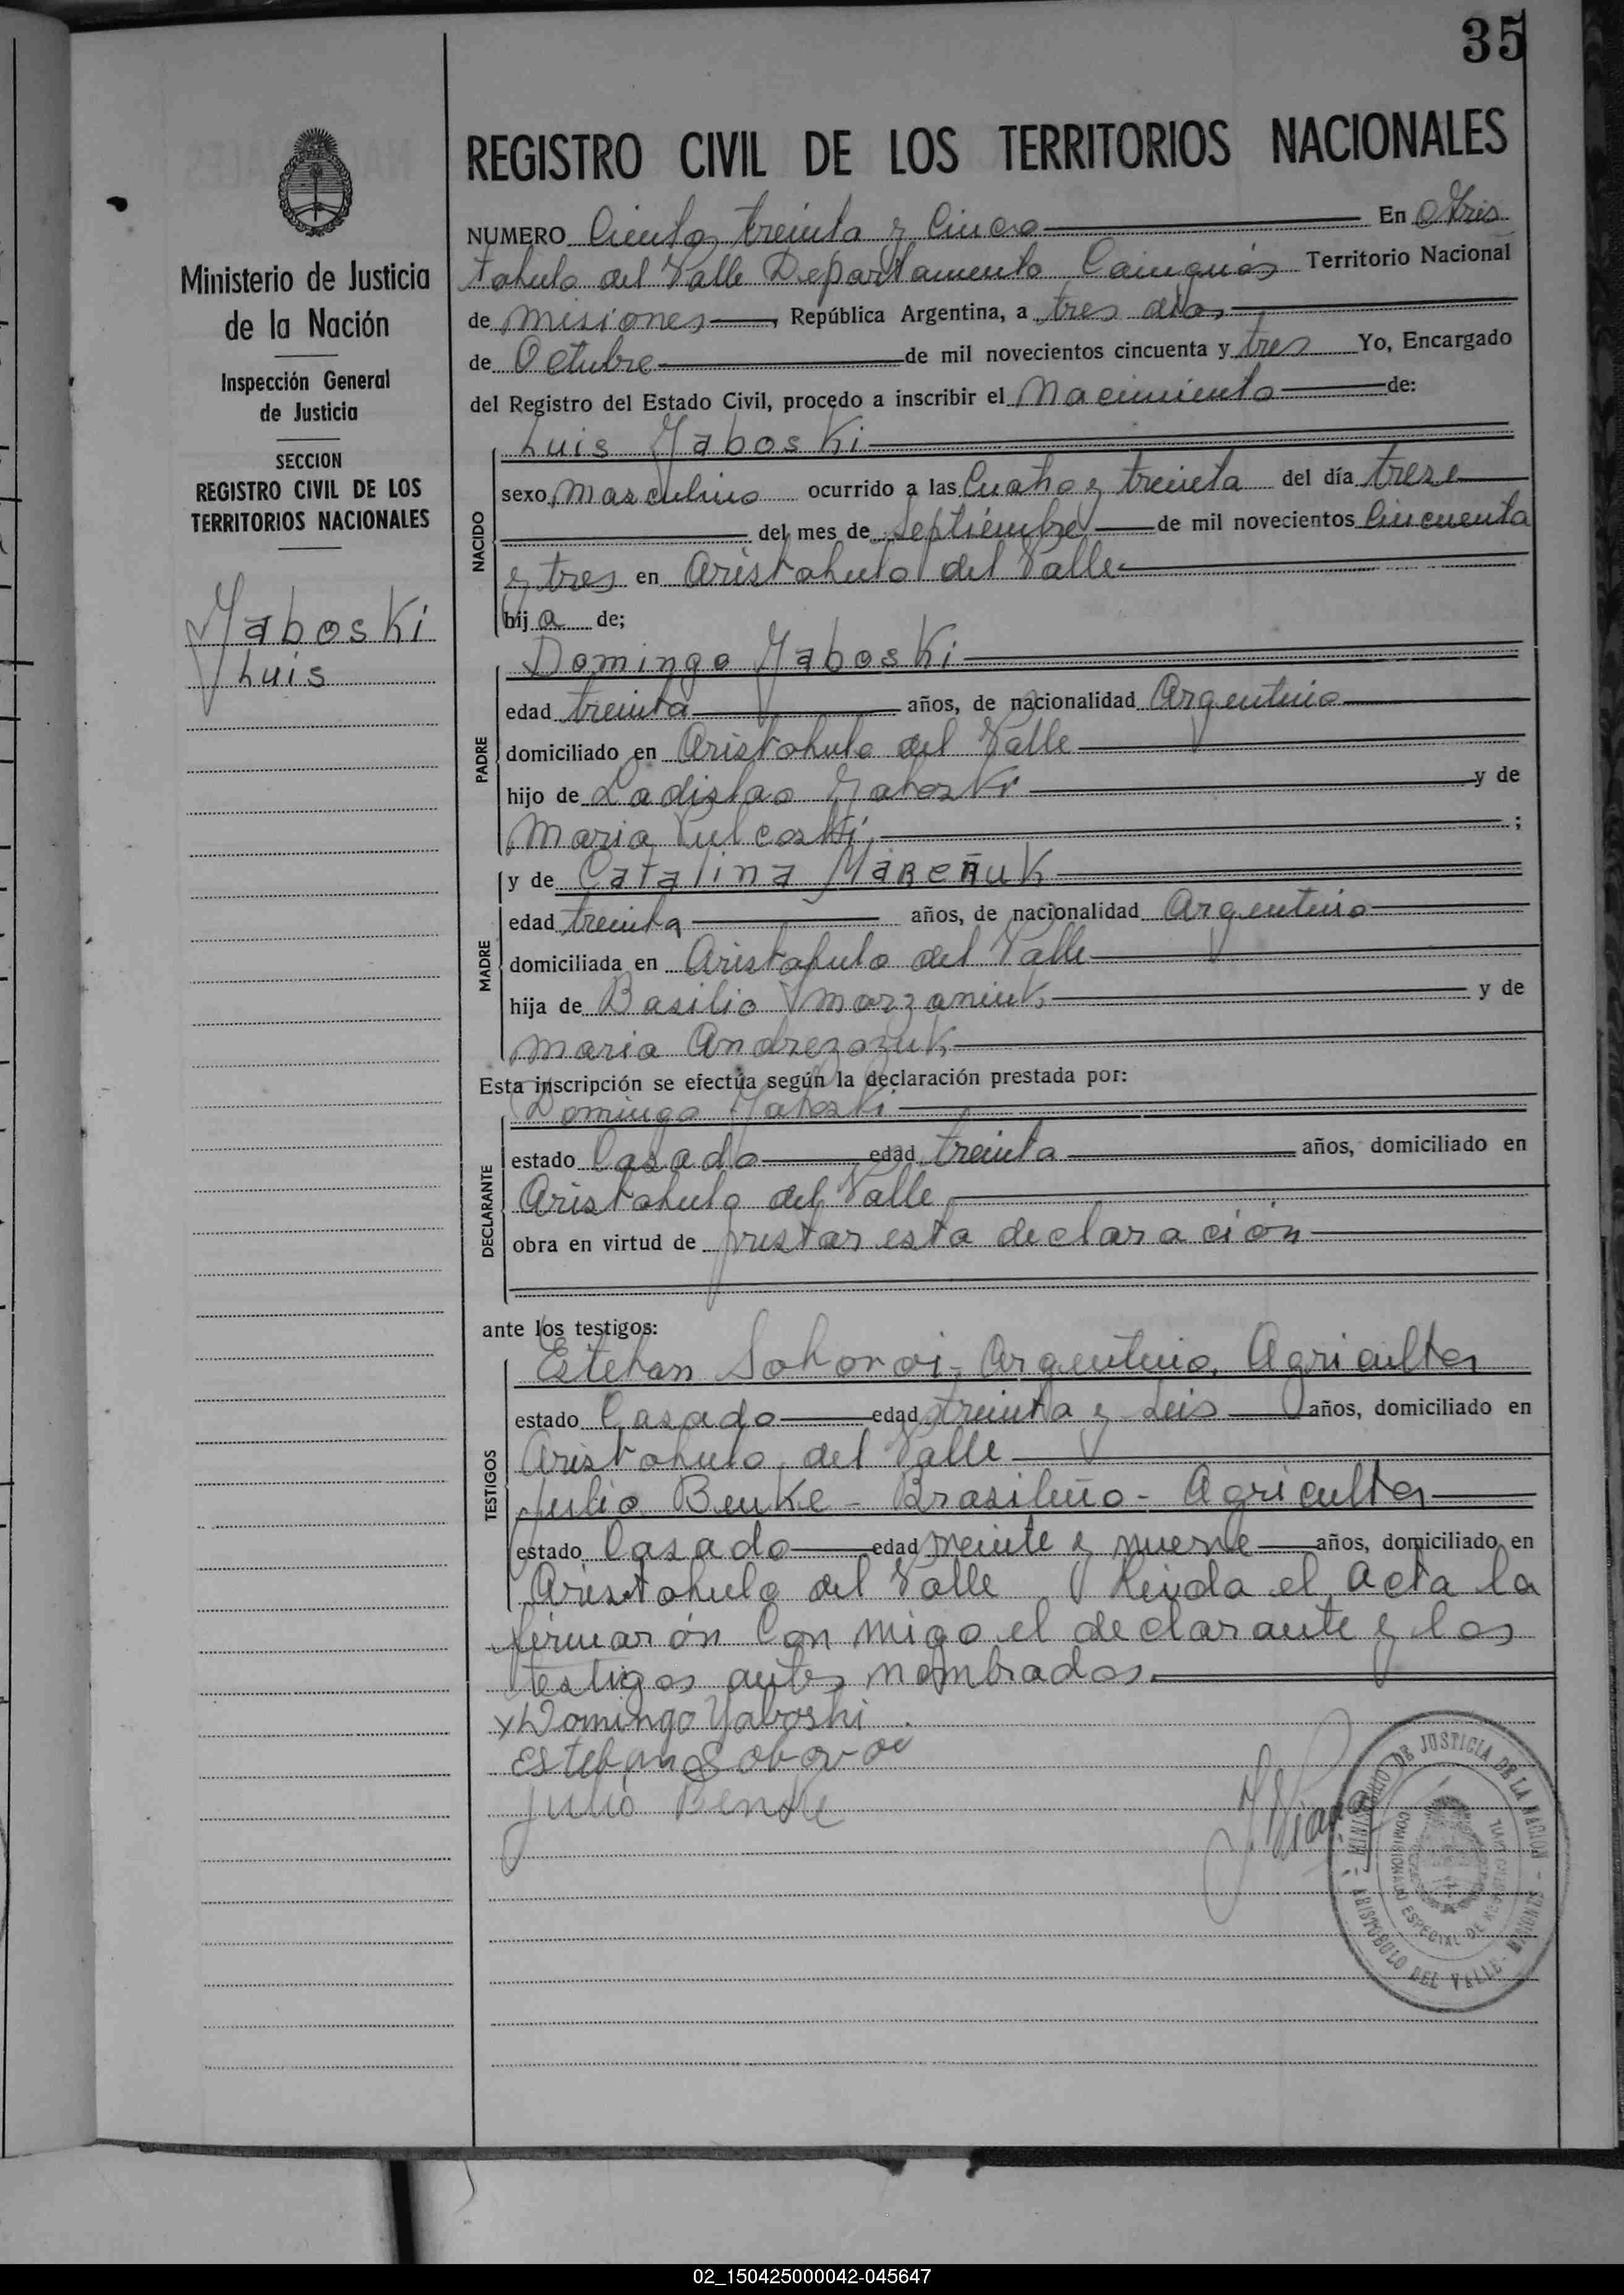 35
REGISTRO CIVIL DE LOS TERRITORIOS NACIONALES
Ministerio de Justicia
de la Nación
Inspección General
de Justicia
SECCION
REGISTRO CIVIL DE LOS
TERRITORIOS NACIONALES
Yaboski
Luis
NUMERO Ciento treinta y Cinco En Aris
tobulo del Valle Departamento Cainguás Territorio Nacional
de Misiones, República Argentina, a tres dias
de Octubre de mil novecientos cincuenta y tres Yo, Encargado
del Registro del Estado Civil, procedo a inscribir el Nacimiento de:
NACIDO
Luis Yaboski
sexo Masculino ocurrido a las Cuatro y treinta del día trese
del mes de Septiembre de mil novecientos Cincuenta
y tres en Aristobulo del Valle
hij a de;
PADRE
Domingo Yaboski
edad treinta años, de nacionalidad Argentino
domiciliado en Aristobulo del Valle
hijo de Ladislao Yaboski y de
Maria Pulcoski ;
MADRE
y de Catalina Mareñuk
edad treinta años, de nacionalidad Argentino
domiciliada en Aristobulo del Valle
hija de Basilio Smarzaniuk y de
Maria Andrezozuk
Esta inscripción se efectúa según la declaración prestada por:
DECLARANTE
Domingo Yaboski
estado Casado edad treinta años, domiciliado en
Aristobulo del Valle
obra en virtud de prestar esta declaración
ante los testigos:
TESTIGOS
Esteban Sobovoi - Argentino, Agricultor
estado Casado edad treinta y seis años, domiciliado en
Aristobulo del Valle
Julio Benke - Brasileño - Agricultor
estado Casado edad veinte y nueve años, domiciliado en
Aristobulo del Valle Leida el Acta la
firmarón Con migo el declarante y los
testigos antes nombrados
x Domingo Yaboski
Esteban Sobovoi
Julio Benke
MINISTERIO DE JUSTICIA DE LA NACION
COMISIONADO ESPECIAL DE REGISTRO CIVIL
ARISTOBULO DEL VALLE - MISIONES
02_150425000042-045647